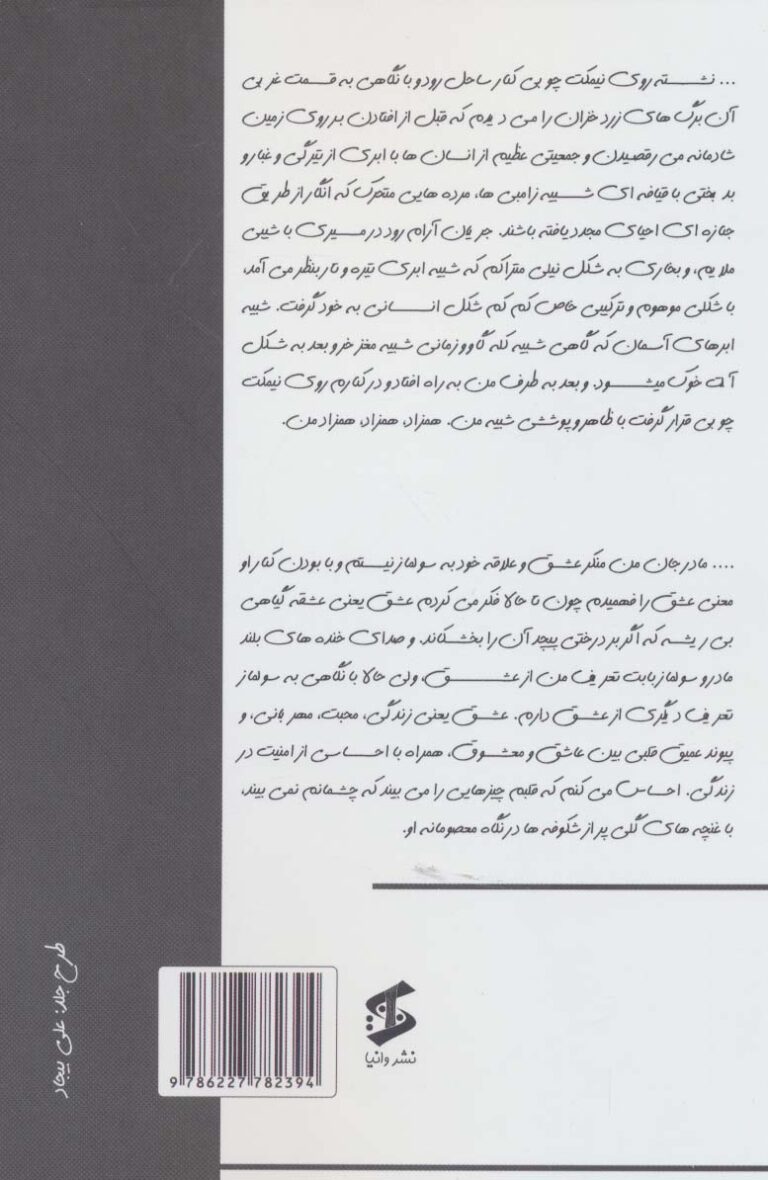 ... نشسته روی نیمکت چوبی کنار ساحل رود و با نگاهی به قسمت غربی
آن برگ های زرد خزان را می دیدم که قبل از افتادن بر روی زمین
شادمانه می رقصیدن و جمعیتی عظیم از انسان ها با ابری از تیرگی و غبار و
بد بختی با قیافه ای شبیه زامبی ها، مرده هایی متحرک که انگار از طریق
جنازه ای احیای مجدد یافته باشند. جریان آرام رود در مسیری با شیبی
ملایم، و بخاری به شکل نیلی متراکم که شبیه ابری تیره و تار بنظر می آمد،
با شکلی موهوم و ترکیبی خاص کم کم شکل انسانی به خود گرفت. شبیه
ابرهای آسمان که گاهی شبیه کله گاو و زمانی شبیه مغز خر و بعد به شکل
آلت خوک میشود. و بعد به طرف من به راه افتاد و در کنارم روی نیمکت
چوبی قرار گرفت با ظاهر و پوششی شبیه من. همزاد، همزاد، همزاد من.
.... مادر جان من منکر عشق و علاقه خود به سولماز نیستم و با بودن کنار او
معنی عشق را فهمیدم چون تا حالا فکر می کردم عشق یعنی عشقه گیاهی
بی ریشه که اگر بر درختی پیچد آن را بخشکاند. و صدای خنده های بلند
مادر و سولماز بابت تعریف من از عشق، ولی حالا با نگاهی به سولماز
تعریف دیگری از عشق دارم. عشق یعنی زندگی، محبت، مهربانی، و
پیوند عمیق قلبی بین عاشق و معشوق، همراه با احساسی از امنیت در
زندگی. احساس می کنم که قلبم چیزهایی را می بیند که چشمانم نمی بیند،
با غنچه های گلی پر از شکوفه ها در نگاه معصومانه او.
طرح جلد: علی بیجاد
نشر وانیا
9 786227 782394